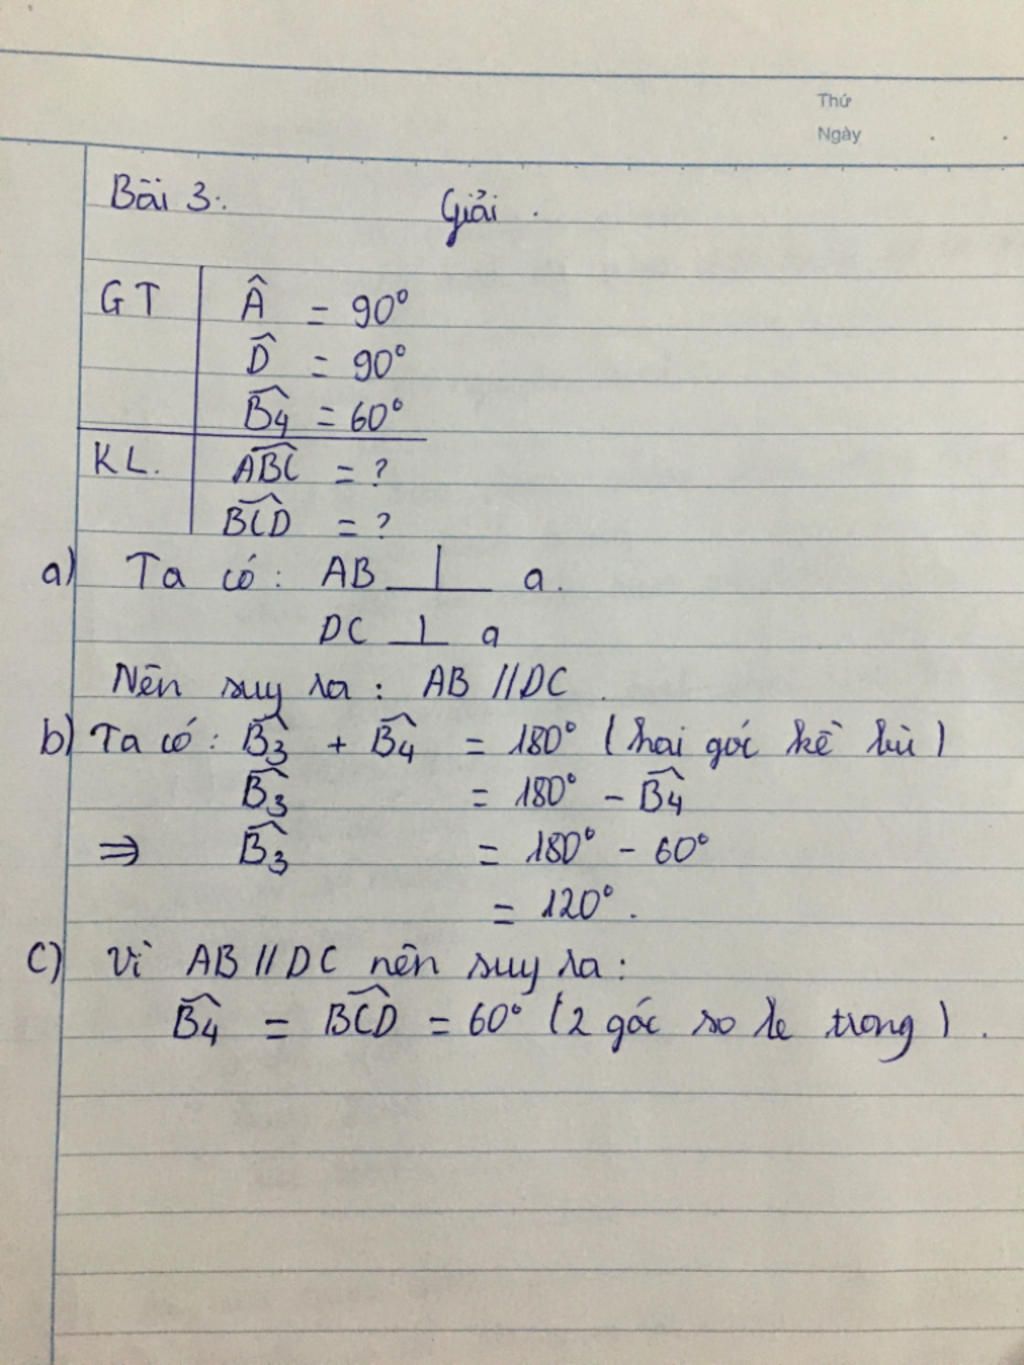 Thứ
Ngày
Bài 3:
Giải.
GT Â = 90°
D̂ = 90°
B̂₄ = 60°
KL. ABĈ = ?
BĈD = ?
a) Ta có: AB ⊥ a.
DC ⊥ a
Nên suy ra: AB // DC.
b) Ta có: B̂₃ + B̂₄ = 180° (hai góc kề bù)
B̂₃ = 180° - B̂₄
⇒ B̂₃ = 180° - 60°
= 120°.
c) Vì AB // DC nên suy ra:
B̂₄ = BĈD = 60° (2 góc so le trong).